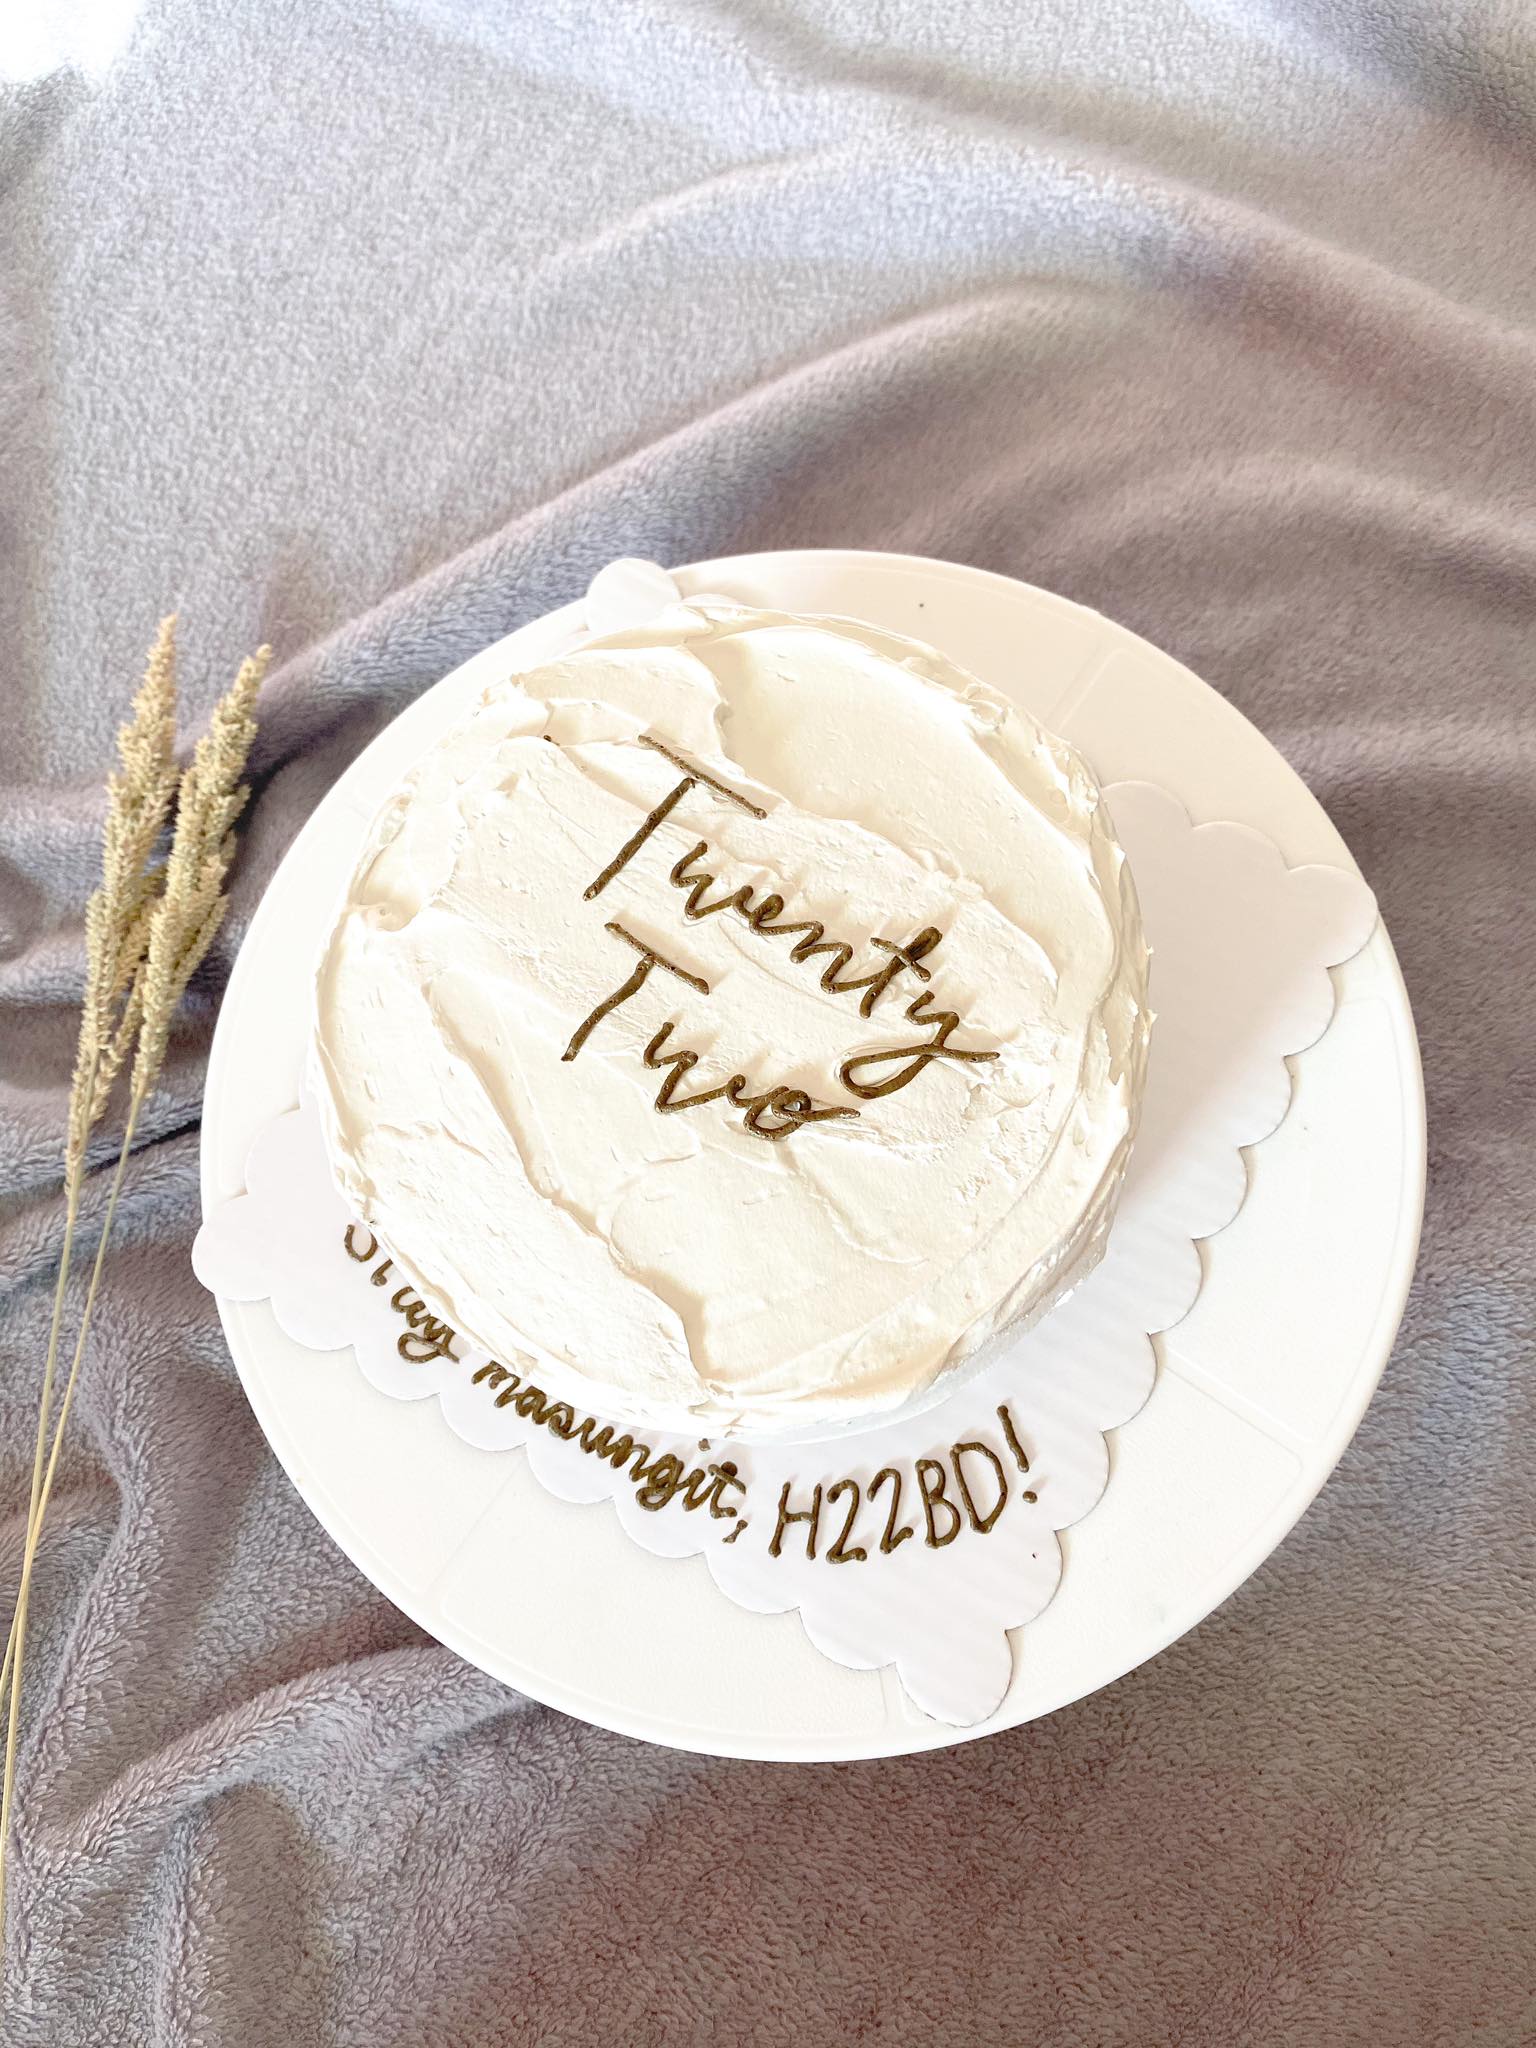 Twenty
Two
Stay masungit, H22BD!